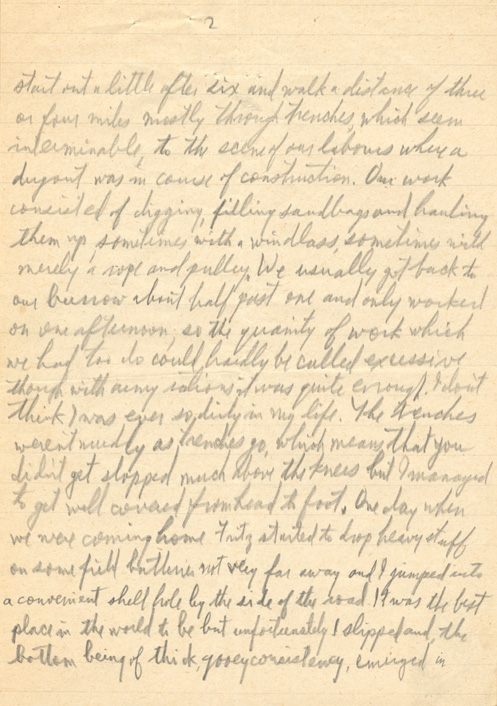 2
start out a little after six and walk a distance of three
or four miles mostly through trenches, which seem
interminable, to the scene of our labours where a
dugout was in course of construction. Our work
consisted of digging, filling sandbags and hauling
them up, sometimes with a windlass, sometimes with
merely a rope and pulley. We usually got back to
our burrow about half past one and only worked
on one afternoon, so the quanity of work which
we had too do could hardly be called excessive
though with army rations it was quite enough. I don't
think I was ever so dirty in my life. The trenches
weren't muddy as trenches go, which means that you
didn't get slopped much above the knees but I managed
to get well covered from head to foot. One day when
we were coming home Fritz started to drop heavy stuff
on some field batteries not very far away and I jumped into
a convenient shell hole by the side of the road. It was the best
place in the world to be but unfortunately I slipped and, the
bottom being of thick, gooey consistency, emerged in